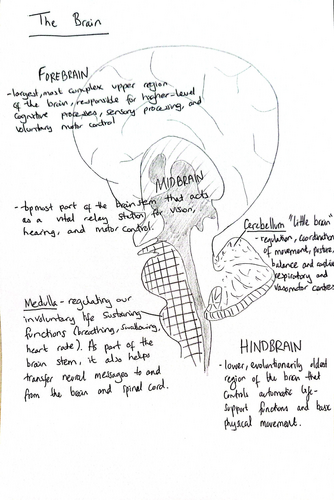 The Brain
FOREBRAIN
-largest, most complex upper region
of the brain, responsible for higher-level
cognitive processes, sensory processing, and
voluntary motor control
MIDBRAIN
-topmost part of the brainstem that acts
as a vital relay station for vision,
hearing, and motor control.
Cerebellum "little brain"
- regulation, coordination
of movement, posture,
balance and cardiac
respiratory and
vasomotor centres
Medulla - regulating our
involuntary life sustaining
functions (breathing, swallowing,
heart rate). As part of the
brain stem, it also helps
transfer neural messages to and
from the brain and spinal cord.
HINDBRAIN
- lower, evolutionarily oldest
region of the brain that
controls automatic life-
support functions and base
physical movement.